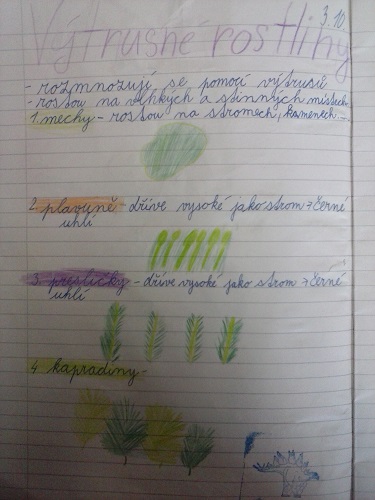 3. 10.
Výtrusné rostliny
- rozmnožují se pomocí výtrusů
- rostou na vlhkých a stinných místech
1. mechy - rostou na stromech, kamenech...
2. plavuně - dříve vysoké jako strom → černé
uhlí
3. přesličky - dříve vysoké jako strom → černé
uhlí
4. kapradiny -